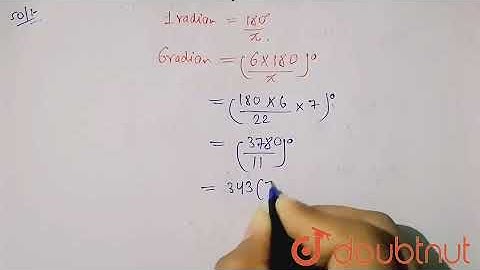 Sol:-
1 radian = 180° / π.
6 radian = (6×180 / π)°
= (180×6 / 22 × 7)°
= (3780 / 11)°
= 343(7
doubtnut